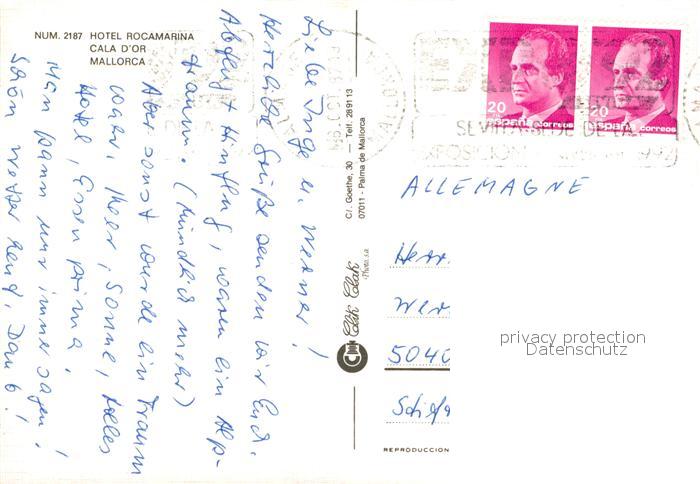 NUM. 2187 HOTEL ROCAMARINA
CALA D'OR
MALLORCA
Liebe Inge u. Werner!
Herzliche Grüße senden wir Euch.
Abflug + Hinflug, waren ein Alp-
traum. (mündlich mehr)
Aber sonst wurde ein Traum
wahr, Meer, Sonne, tolles
Hotel, Essen prima!
Men kann nur immer sagen!
Schön weiter
Clik Clak
Photo, s.a.
C/. Goethe, 30 — Telf. 289113
07011 - Palma de Mallorca
20
españa correos
20
españa correos
SEVILLA SEDE DE LA
1992
ALLEMAGNE
Herr
Wer
5040
REPRODUCCION
privacy protection
Datenschutz